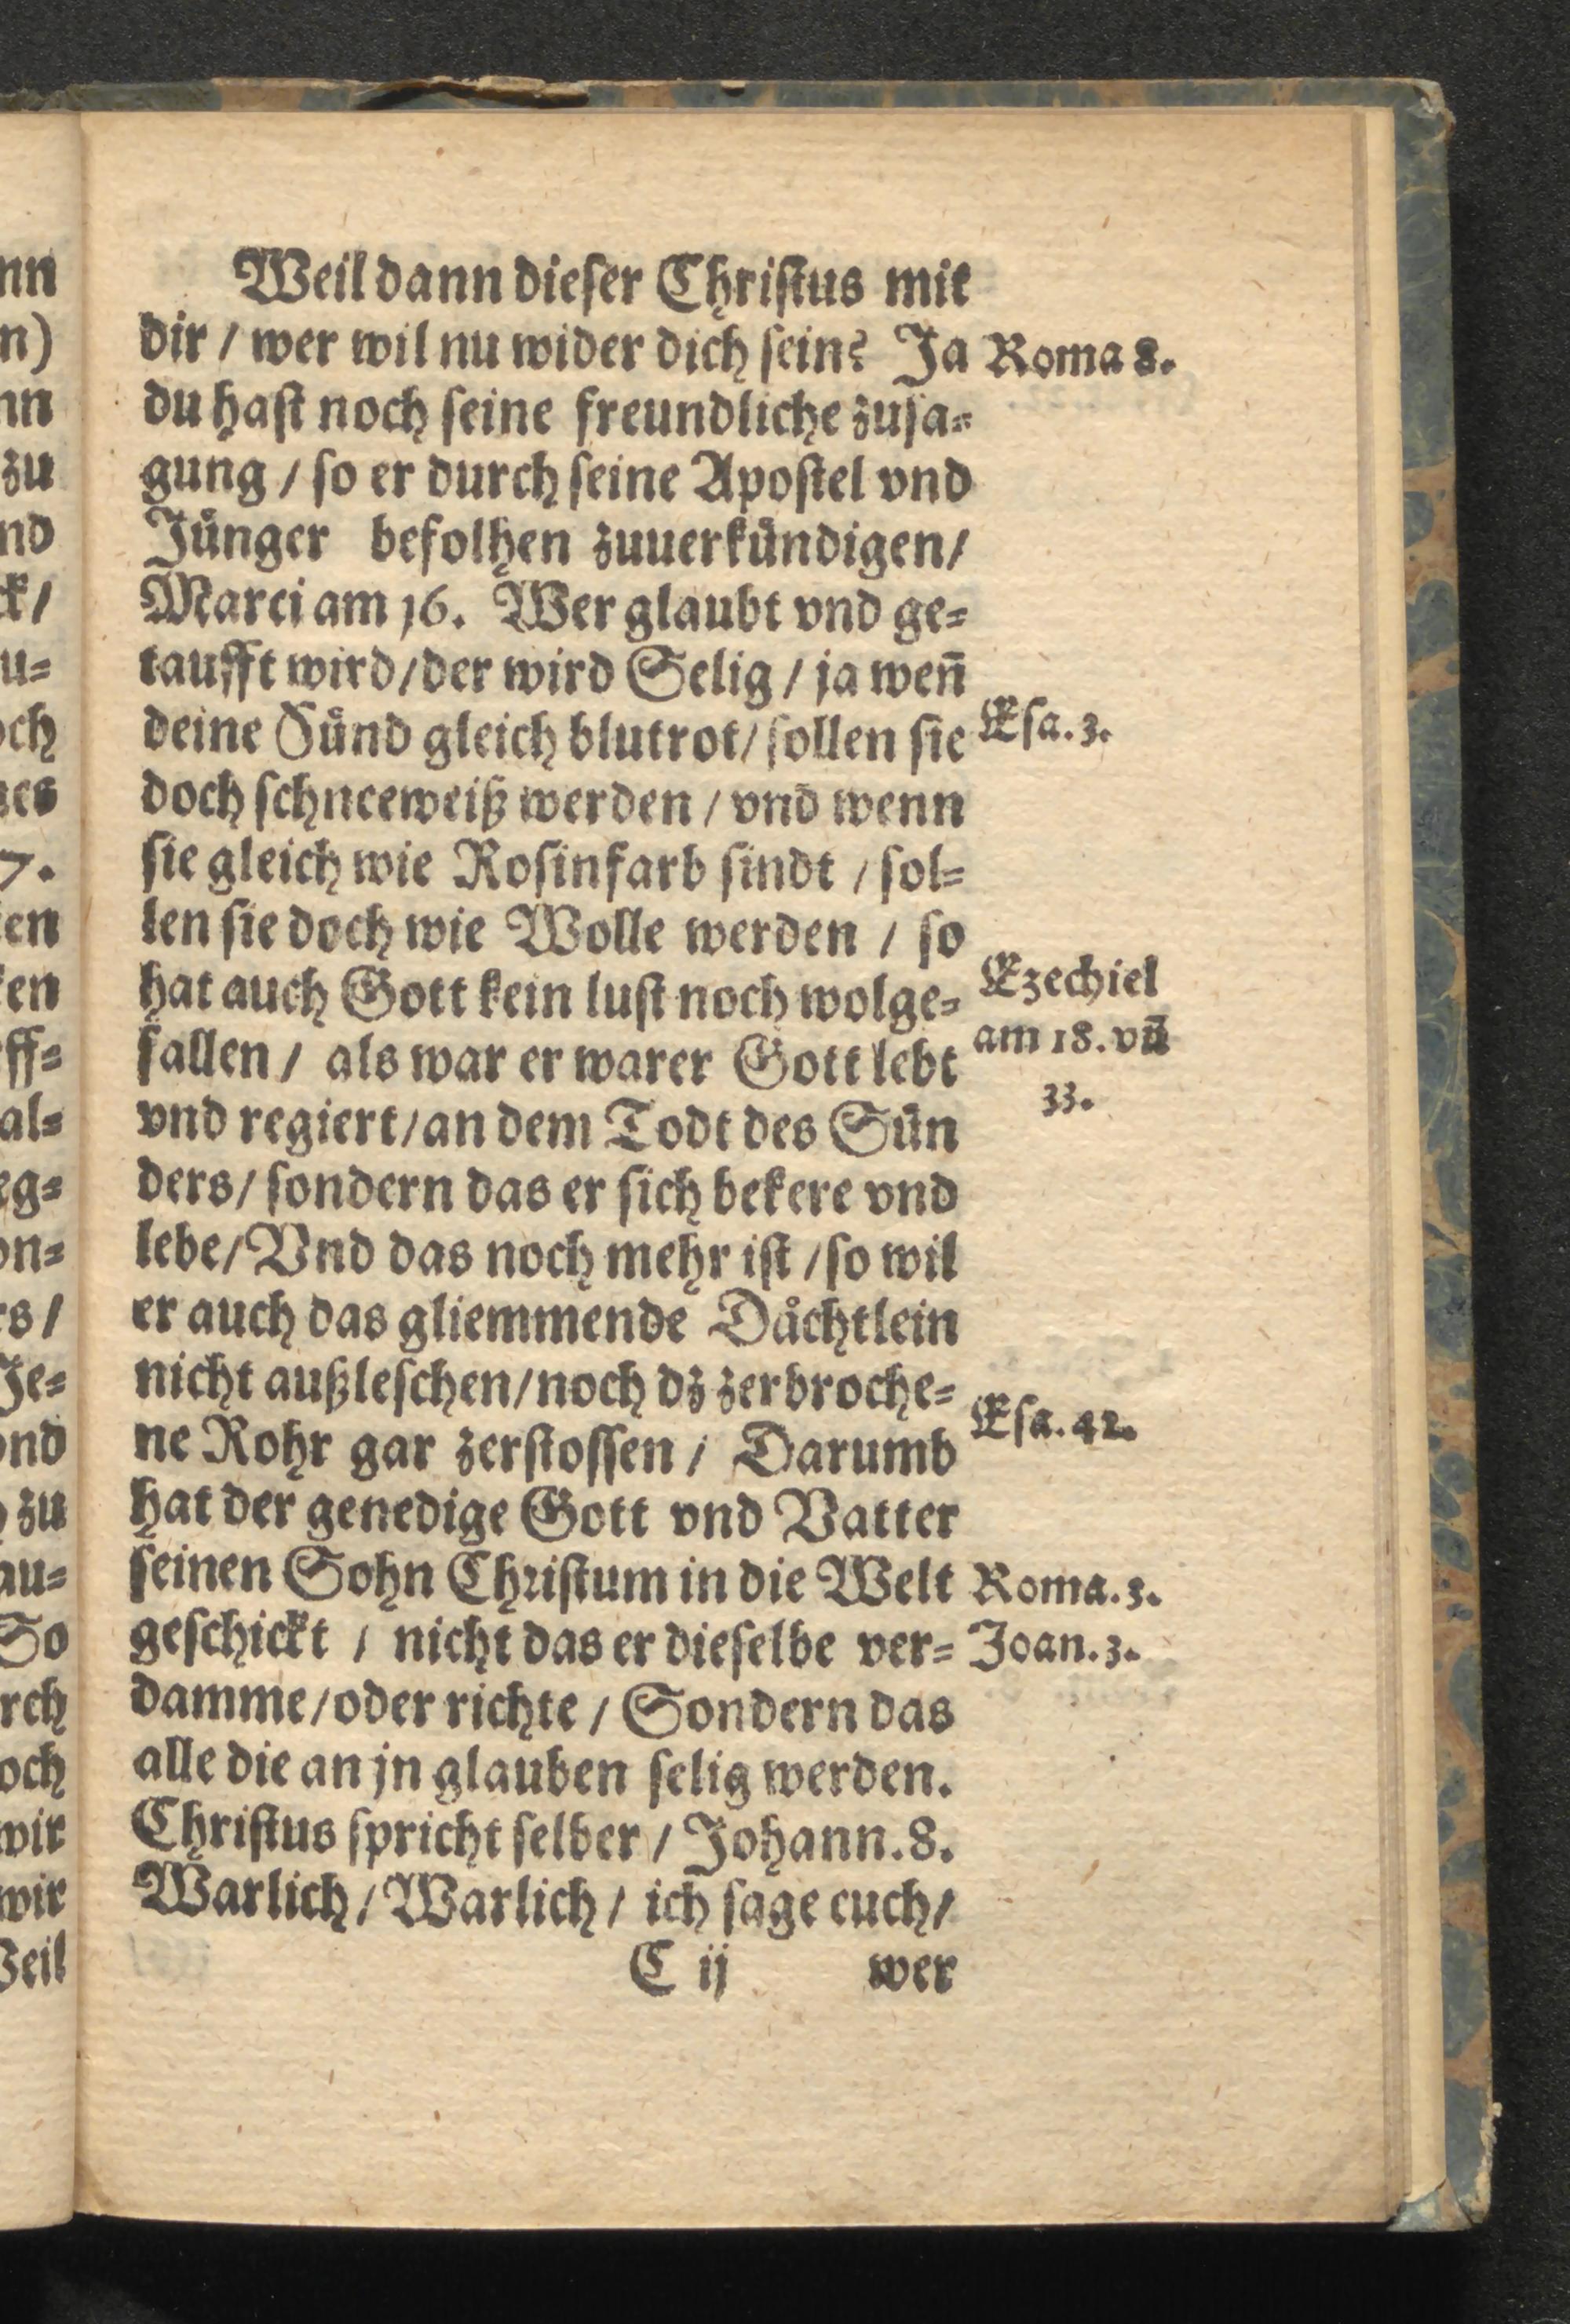 Weil dann dieser Christus mit
dir / wer wil nu wider dich sein? Ja
Roma 8.
du hast noch seine freundliche zusa=
gung / so er durch seine Apostel vnd
Jůnger befolhen zuuerkůndigen/
Marci am 16. Wer glaubt vnd ge=
taufft wird/der wird Selig / ja weñ
deine Sůnd gleich blutrot/ sollen sie
Esa. 3.
doch schneeweiß werden / vnd wenn
sie gleich wie Rosinfarb sindt / sol=
len sie doch wie Wolle werden / so
hat auch Gott kein lust noch wolge=
fallen / als war er warer Gott lebt
Ezechiel
am 18. vñ
33.
vnd regiert/an dem Todt des Sůn
ders/ sondern das er sich bekere vnd
lebe/ Vnd das noch mehr ist /so wil
er auch das gliemmende Dåchtlein
nicht außleschen/noch dz zerbroche=
ne Rohr gar zerstossen / Darumb
Esa. 42.
hat der genedige Gott vnd Vatter
seinen Sohn Christum in die Welt
Roma. 3.
geschickt / nicht das er dieselbe ver=
Joan. 3.
damme/oder richte / Sondern das
alle die an jn glauben selig werden.
Christus spricht selber / Johann. 8.
Warlich/ Warlich / ich sage euch/
C ij
wer
nn
n)
nn
zu
nd
ck/
u=
och
nes
7.
ten
ken
ff=
al=
eg=
on=
rs /
Je=
ond
zu
au=
So
rch
och
wir
wir
Weil